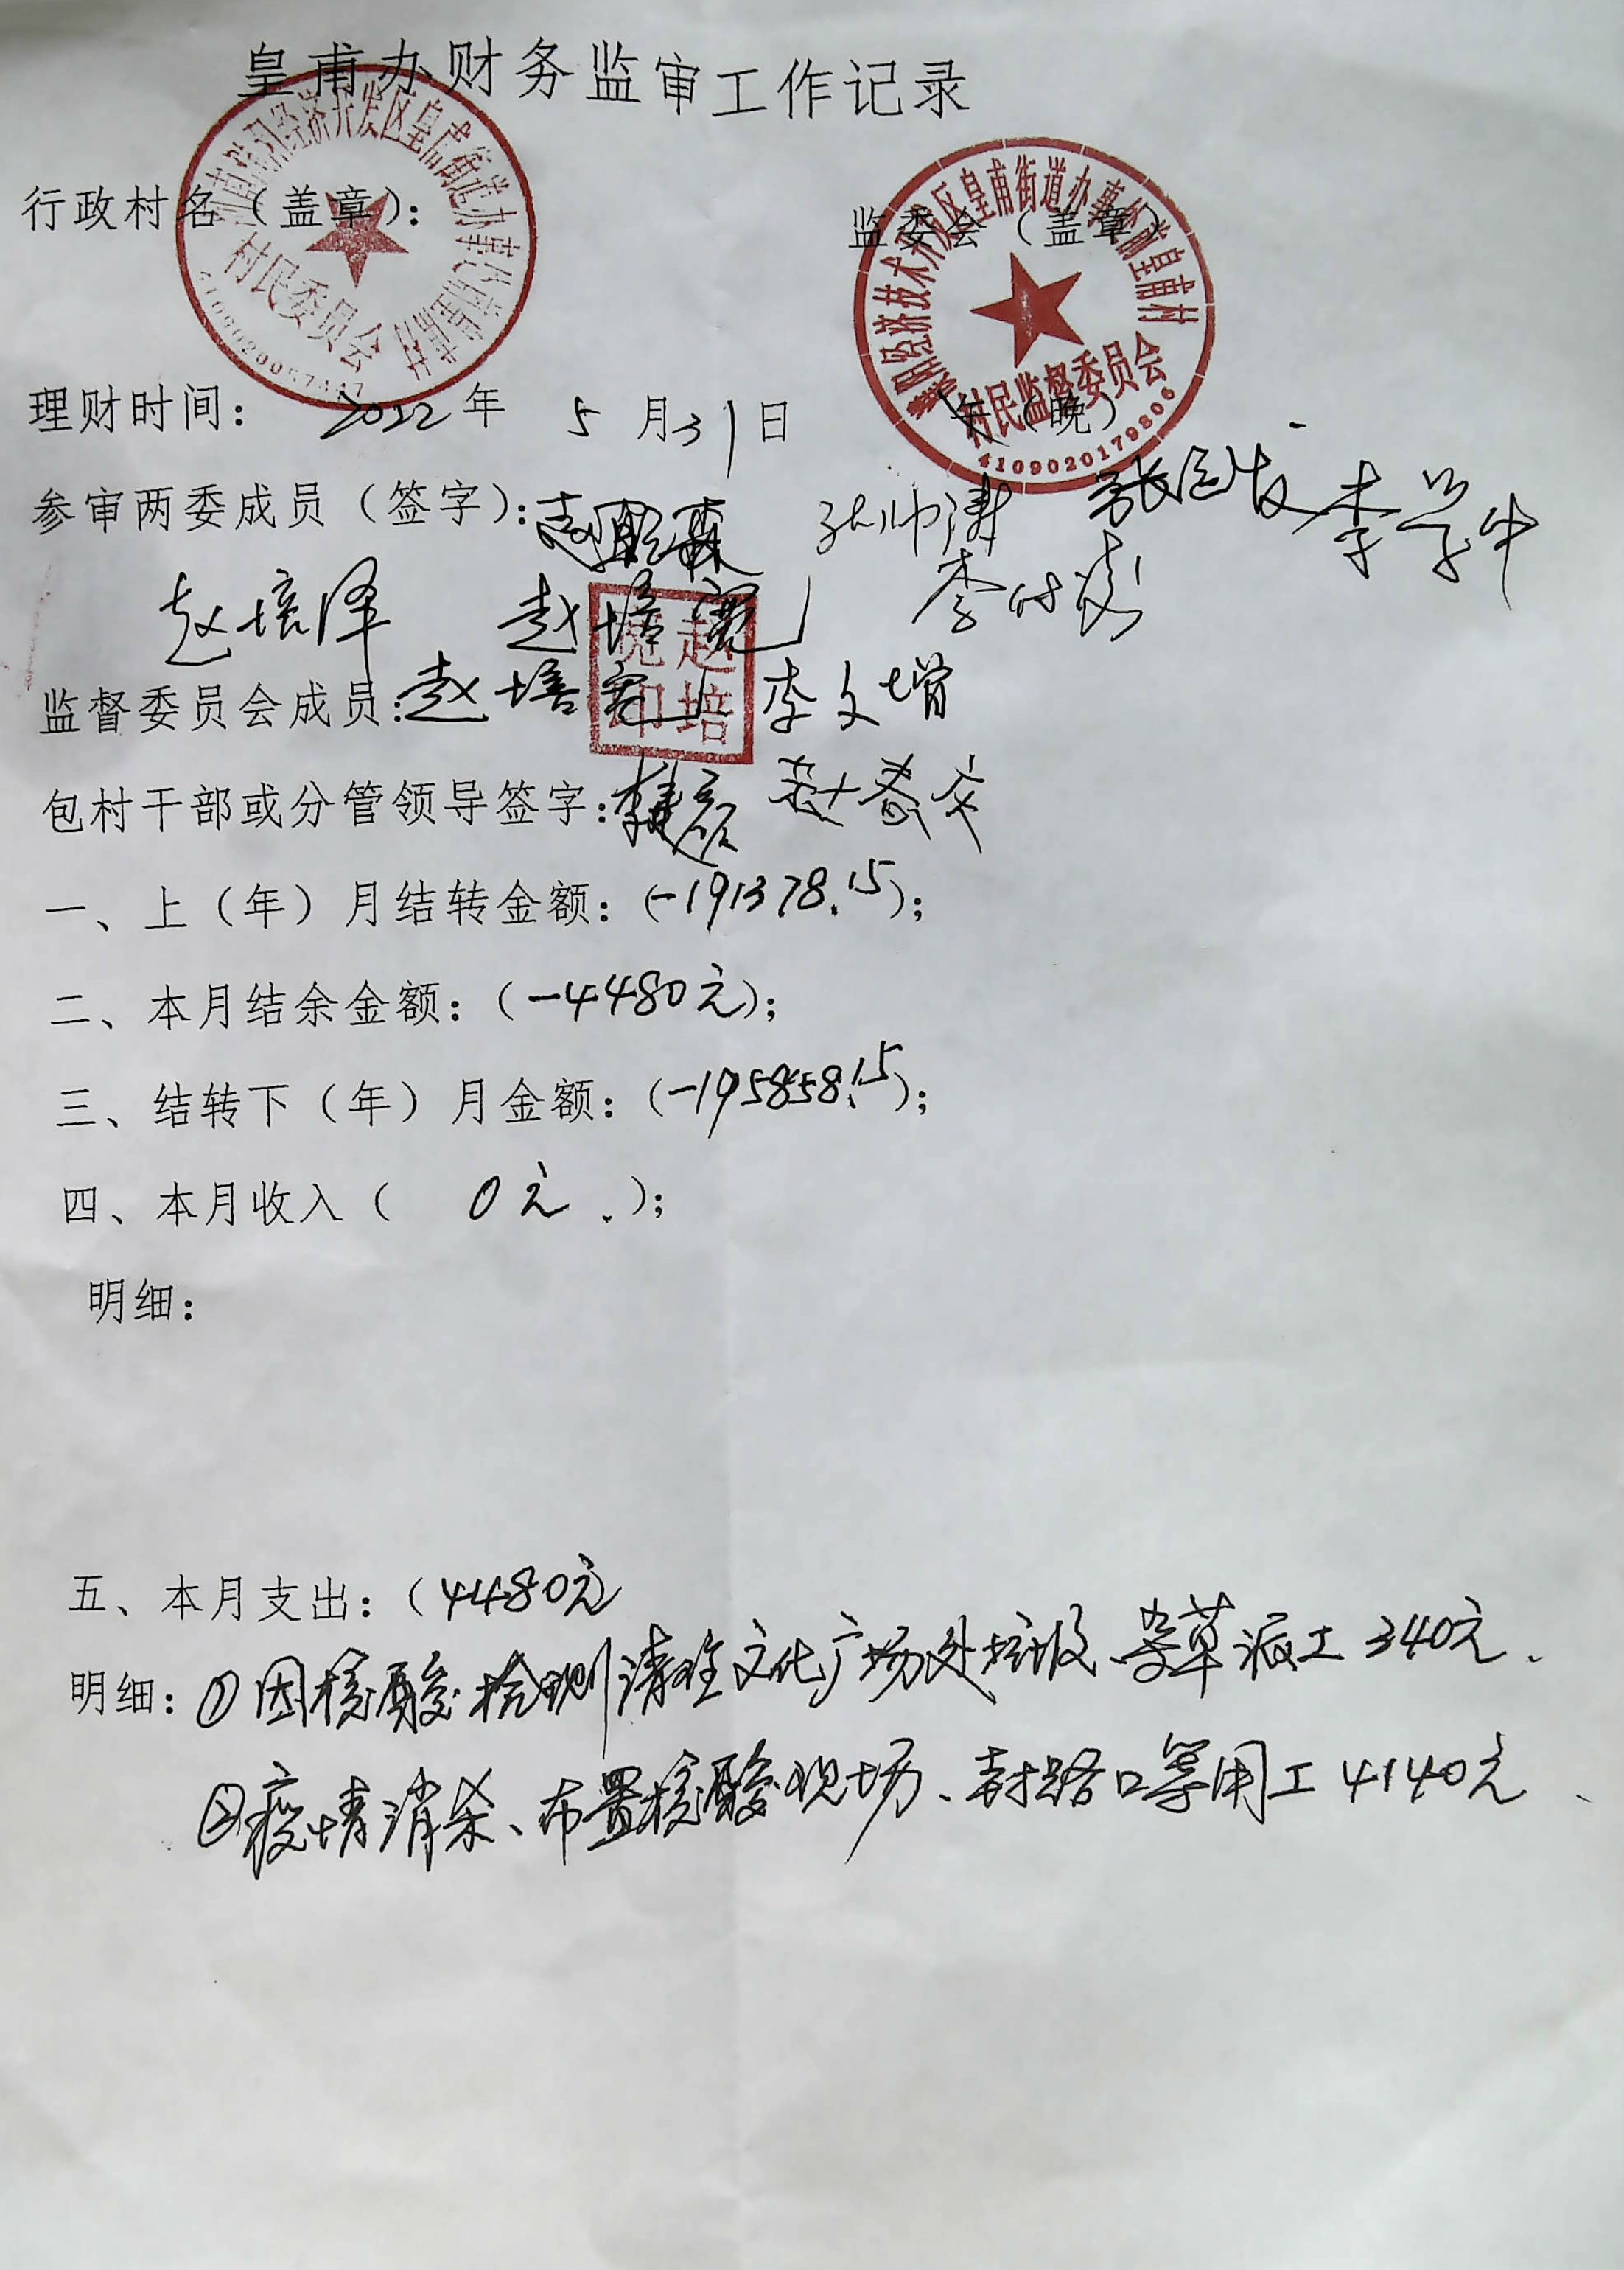 皇甫办财务监审工作记录
行政村名（盖章）：
监委会（盖章）
村民委员会
区皇甫街道办事处前皇甫村
村民监督委员会
4109020179806
理财时间： 2022年 5月31日 午（晚）
参审两委成员（签字）： 张帅涛 李学中
赵培泽 赵培宽 李付彬
监督委员会成员：赵培宽 李文增
赵培宽印
包村干部或分管领导签字：
一、上（年）月结转金额：（-191378.15）；
二、本月结余金额：（-4480元）；
三、结转下（年）月金额：（-195858.15）；
四、本月收入（ 0元.）；
明细：
五、本月支出：（4480元
明细：①因核酸检测清理文化广场处垃圾、杂草派工340元.
②疫情消杀、布置核酸现场、封路口等用工4140元、